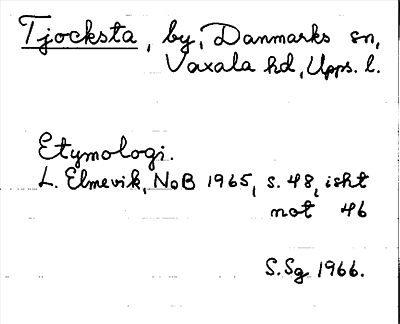 Tjocksta, by, Danmarks sn,
Vaxala hd, Upps. l.
Etymologi.
L. Elmevik, NoB 1965, s. 48, isht
not 46
S.Sg 1966.